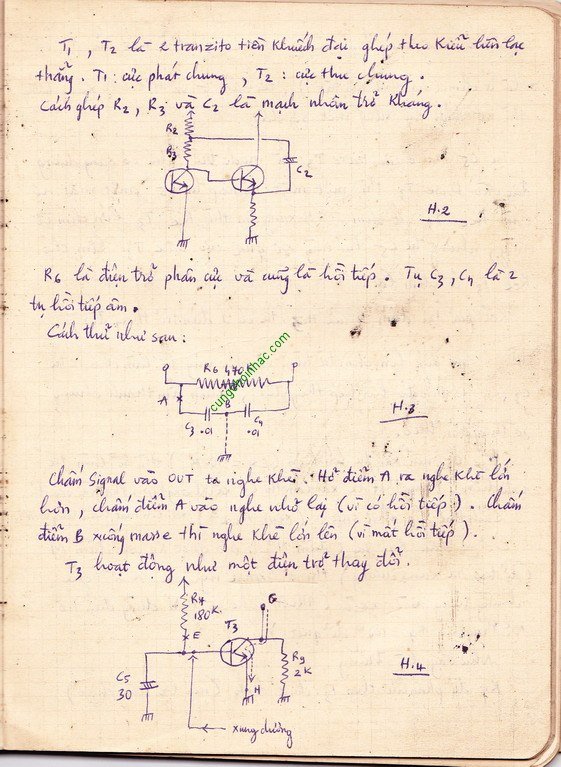 T1, T2 là 2 tranzito tiền khuếch đại ghép theo kiểu liên lạc
thẳng. T1: cực phát chung, T2: cực thu chung.
Cách ghép R2, R3 và C2 là mạch nhân trở kháng.
R2
R3
C2
H.2
R6 là điện trở phân cực và cũng là hồi tiếp. Tụ C3, C4 là 2
tụ hồi tiếp âm.
Cách thử như sau:
R6 470K
P
A
B
C3 .01
C4 .01
cungchoinhac.com
H.3
Chấm Signal vào OUT ta nghe khẽ. Hở điểm A ra nghe khẽ lớn
hơn, chấm điểm A vào nghe nhỏ lại (vì có hồi tiếp). Chấm
điểm B xuống masse thì nghe khẽ lớn lên (vì mất hồi tiếp).
T3 hoạt động như một điện trở thay đổi.
R4
180K
E
T3
G
R9
2K
H
C5
30
H.4
xung dương